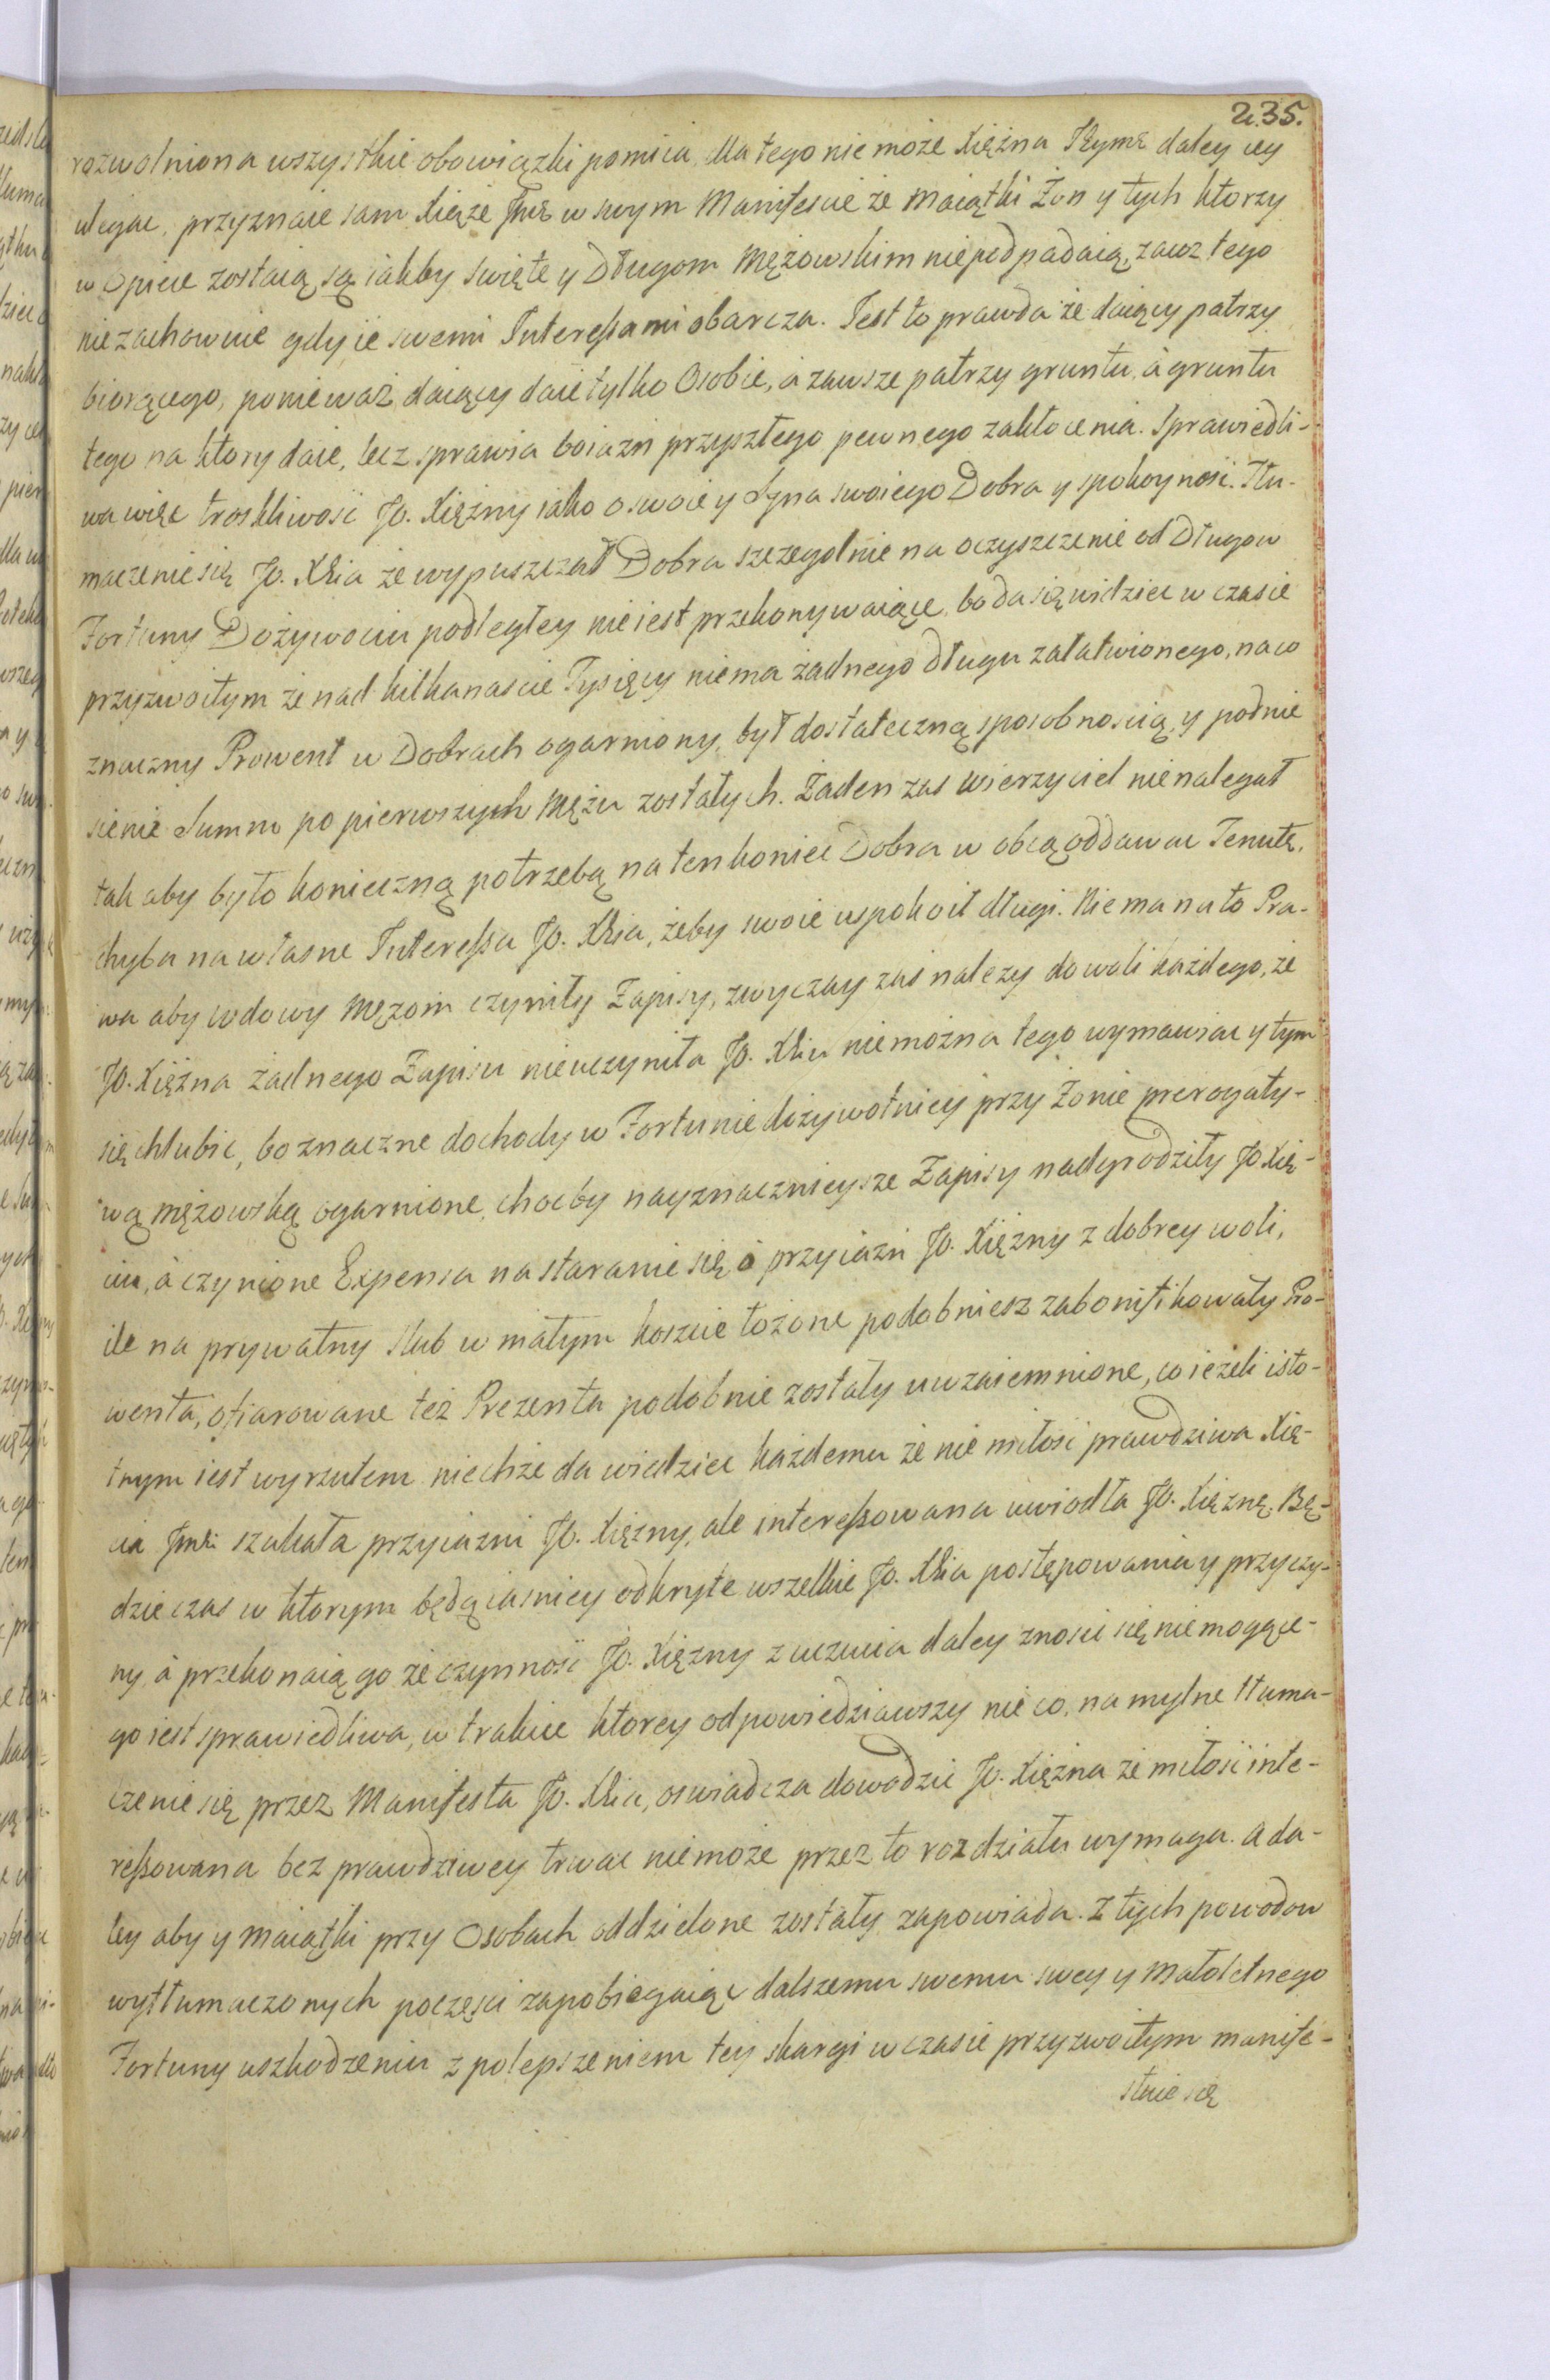 235.
rozwolniona wszystkie obowiązki pomiia, dla tego nie może Xiężna Jeymć daley iey
ulegac, przyznaie sam Xiąże Jmć w swym Manifescie że Maiątki Żon y tych ktorzy
w opiece zostaią, są iakby swięte y Długom Mężowskim niepodpadaią, zawsz tego
niezachowuie gdy ie swemi Interessami obarcza. Jest to prawda że daiący patrzy
biorącego, ponieważ daiący daie tylko Osobie, á zawsze patrzy gruntu, á gruntu
tego na ktory daie, lecz sprawia boiazn przyszłego pewnego zakłocenia. Sprawiedli-
wa więc troskliwosć Jo. Xiężny iako o swoie y Syna swoiego Dobra y spokoynosć. Tłu-
maczenie się Jo. Xcia że wypuszczał Dobra szczegolnie na oczyszczenie od Długow
Fortuny Dożywociu podległey nie iest przekonywaiące, bo da się widziec w czasie
przyzwoitym że nad kilkanascie Tysięcy niema żadnego długu załatwionego, na co
znaczny Prowent w Dobrach ogarniony, był dostateczną sposobnoscią, y podnie
sienie Summ po pierwszych Mężu zostałych. Żaden zas wierzyciel nienalegał
tak aby było konieczną potrzebą na ten koniec Dobra w obcą oddawac Tenutę,
chyba na własne Interessa Jo. Xcia, żeby swoie uspokoił długi. Niema na to Pra-
wa aby wdowy Mężom czyniły Zapisy, zwyczay zaś nalezy do woli każdego, że
Jo. Xiężna żadnego Zapisu nieuczyniła Jo. Xciu niemożna tego wymawiac y tym
się chlubic, bo znaczne dochody w Fortunie dożywotniey przy Żonie prerogaty-
wą mężowską ogarnione, choćby nayznacznieysze Zapisy nadgrodziły Jo Xię-
ciu, á czynione Expensa na staranie się o przyiaźń Jo. Xiężny z dobrey woli,
ile na prywatny slub w małym koszcie łożone podobniesz zabonifikowały Pro-
wenta, ofiarowane też Prezenta podobnie zostały uwzaiemnione, co ieżeli isto-
tnym iest wyrzutem niechże da wiedziec każdemu że nie miłosć prawdziwa Xię-
cia Jmci szukała przyiazni Jo. Xiężny, ale interessowana uwiodła Jo. Xiężnę. Bę-
dzie czas w ktorym będą iasniey odkryte wszelkie Jo. Xcia postępowania y przyczy-
ny, á przekonaią go że czynnosć Jo. Xiężny z uczucia daley znosic się niemogące-
go iest sprawiedliwa, w trakcie ktorey odpowiedziawszy nieco, na mylne tłuma-
czenie się przez Manifesta Jo. Xcia, oswiadcza dowodzic Jo. Xiężna że miłosć inte-
ressowana bez prawdziwey trwac niemoże przez to rozdziału wymaga. A da-
ley aby y Maiątki przy Osobach oddzielone zostały zapowiada. Z tych powodow
wytłumaczonych poczęsci zapobiegaiąc dalszemu swemu swey y Małoletnego
Fortuny uszkodzeniu z polepszeniem tey skargi w czasie przyzwoitym manife-
stuie się